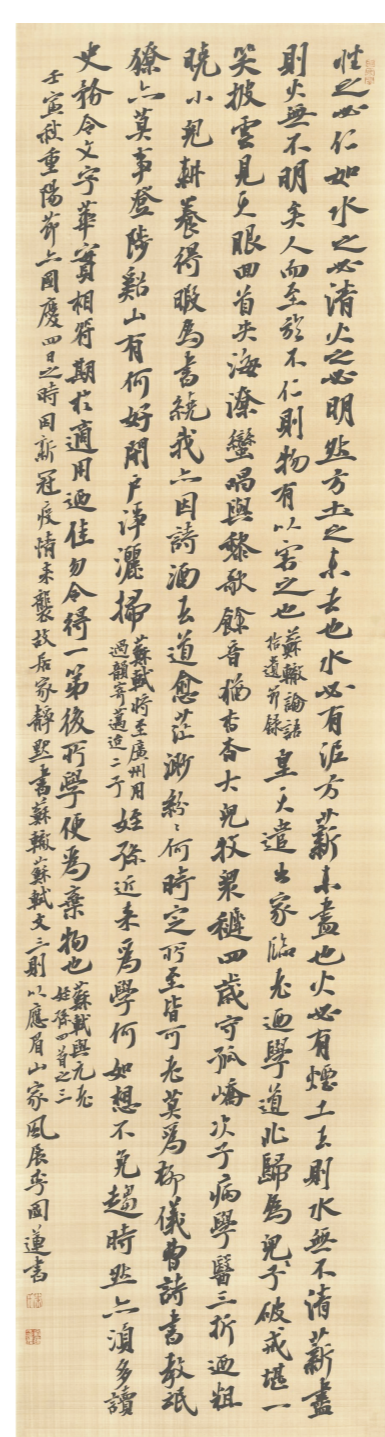 性之必仁如水之必清火之必明然方土之未去也水必有泥方薪未盡也火必有煙土去則水無不清薪盡
則火無不明矣人而至於不仁則物有以害之也
蘇轍論語
拾遺節錄
皇天遣出家臨老迺學道北歸為兒子破戒堪一
笑披雲見天眼回首失海潦蠻唱與黎歌餘音猶杳杳大兒牧衆穉四歲守孤嶠次子病學醫三折迺粗
曉小兒耕養得暇為書繞我亦因詩酒去道愈茫渺紛紛何時定所至皆可老莫為柳儀曹詩書教氓
獠亦莫事登陟谿山有何好閉戶淨灑掃
蘇軾將至廣州用
過韻寄邁迨二子
姪孫近来為學何如想不免趨時然亦須多讀
史務令文字華實相符期於適用迺佳勿令得一第後所學便為棄物也
蘇軾與元老
姪孫四首之三
壬寅秋重陽節亦國慶四日之時因新冠疫情来襲故居家靜默書蘇轍蘇軾文三則以應眉山家風展 國蓮書